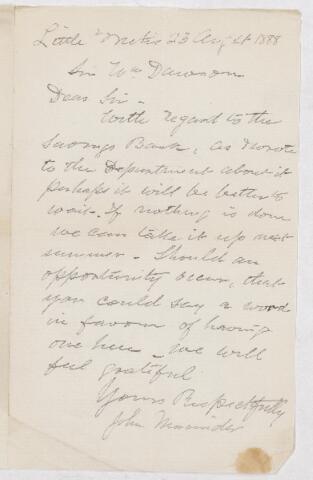 Little Metis 23 Aug st 1888
Sir Wm Dawson
Dear Sir -
With regard to the
Savings Bank, as I wrote
to the Department about it
perhaps it will be better to
wait. If nothing is done
we can take it up next
summer - Should an
opportunity occur, that
you could say a word
in favour of having
one here - we will
feel grateful
Yours Respectfully
John